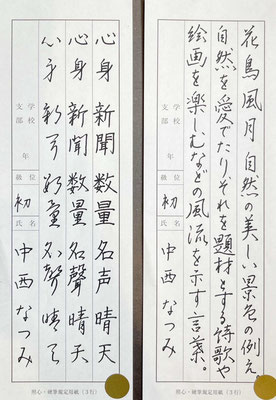 花鳥風月 自然の美しい景色の例え
自然を愛でたりそれを題材とする詩歌や
絵画を楽しむなどの風流を示す言葉。
学校
支部
年
級位 初 氏名 中西なつみ
硬筆規定用紙(3行)
心身 新聞 数量 名声 晴天
心身 新聞 数量 名聲 晴天
心身 新聞 数量 名聲 晴天
学校
支部
年
級位 初 氏名 中西なつみ
硬筆規定用紙(3行)